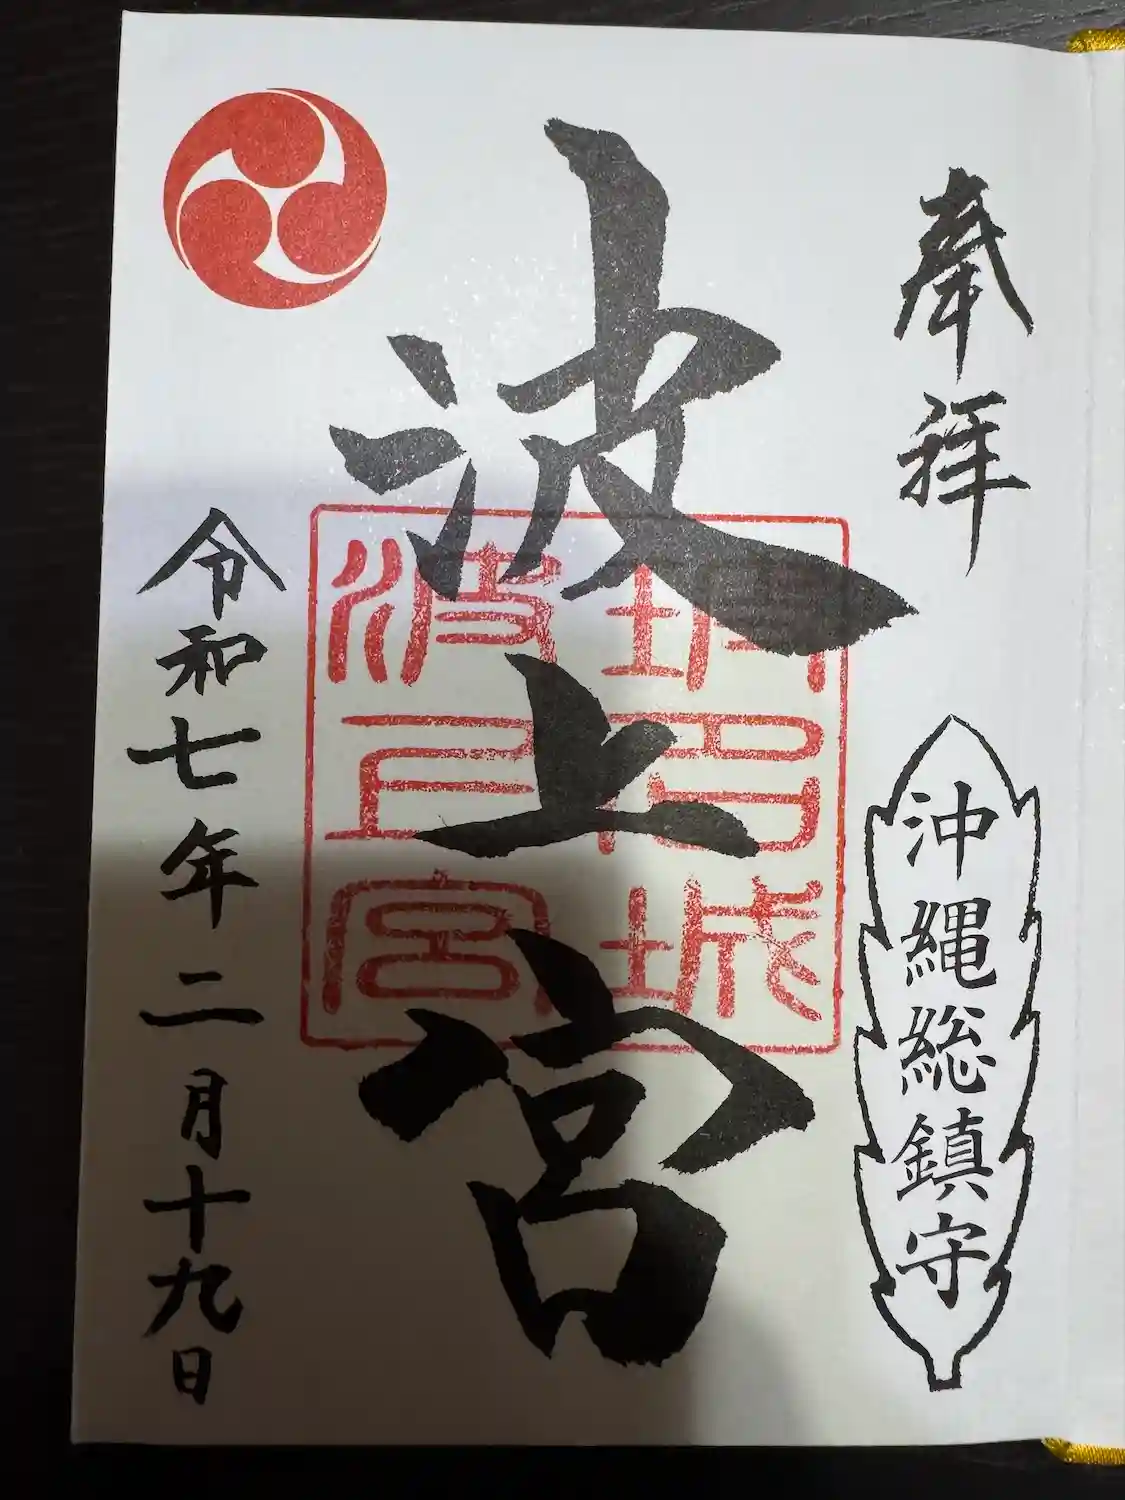 奉拝
沖縄総鎮守
波上宮
琉球城
波上宮
令和七年二月十九日